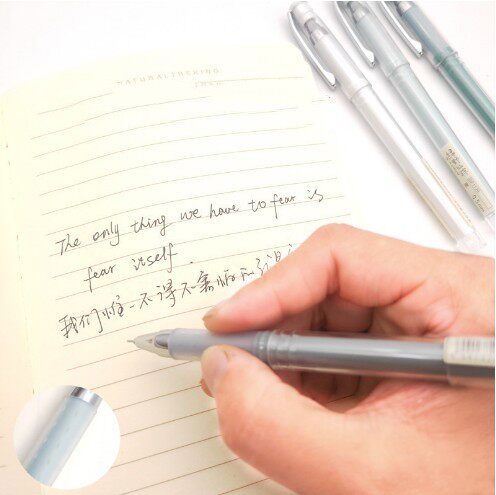 NATURAL THEKING
The only thing we have to fear is
fear itself.
我们惟一不得不害怕的